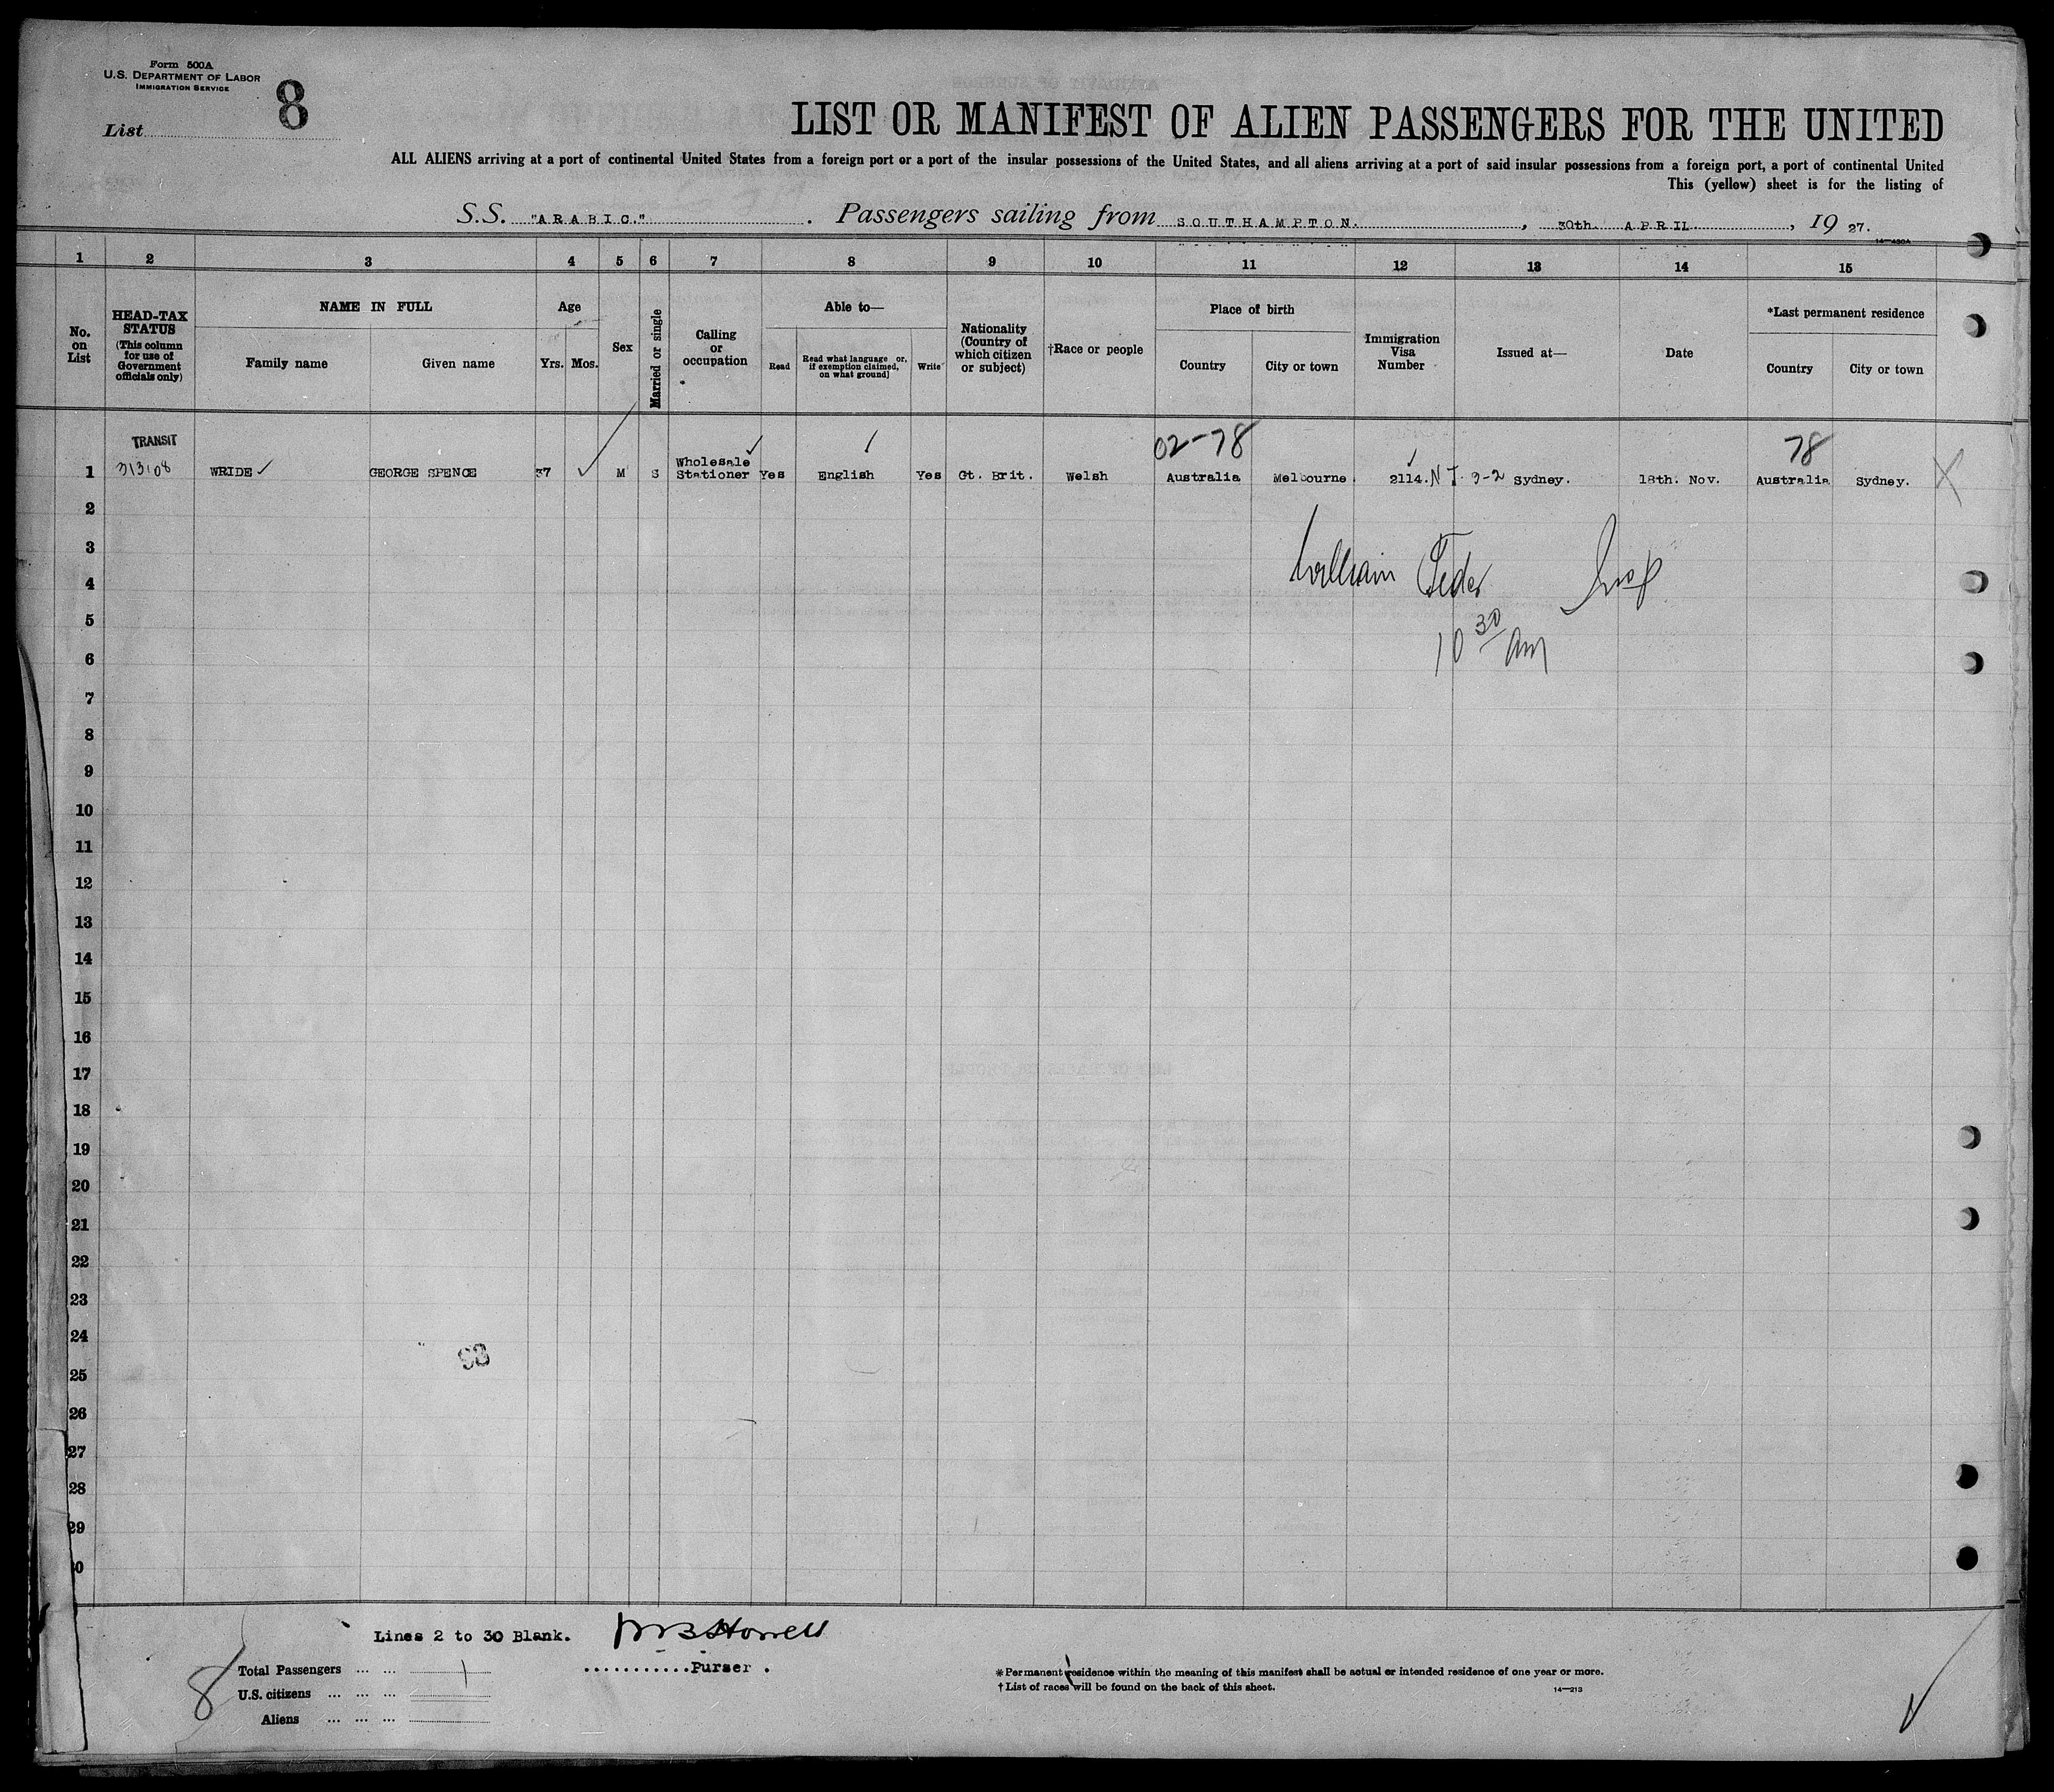 Form 500A
U.S. DEPARTMENT OF LABOR
IMMIGRATION SERVICE
List 8
LIST OR MANIFEST OF ALIEN PASSENGERS FOR THE UNITED
ALL ALIENS arriving at a port of continental United States from a foreign port or a port of the insular possessions of the United States, and all aliens arriving at a port of said insular possessions from a foreign port, a port of continental United
This (yellow) sheet is for the listing of
S.S. "ARABIC." . Passengers sailing from SOUTHAMPTON. , 30th. APRIL. , 19 27.
14—430A
1 2 3 4 5 6 7 8 9 10 11 12 13 14 15
No. on List
HEAD-TAX STATUS (This column for use of Government officials only)
NAME IN FULL
Family name Given name
Age
Yrs. Mos.
Sex
Married or single
Calling or occupation
Able to—
Read Read what language or, if exemption claimed, on what ground] Write
Nationality (Country of which citizen or subject)
†Race or people
Place of birth
Country City or town
Immigration Visa Number
Issued at—
Date
*Last permanent residence
Country City or town
TRANSIT 02-78 78
1 31308 WRIDE ✓ GEORGE SPENCE 37 ✓ M S Wholesale Stationer Yes English Yes Gt. Brit. Welsh Australia Melbourne. 2114. N J. 3-2 Sydney. 18th. Nov. Australia Sydney. X
2
3
William Feder Insp
4
5
10 30 am
6
7
8
9
10
11
12
13
14
15
16
17
18
19
20
21
22
23
24
93
25
26
27
28
29
30
Lines 2 to 30 Blank.
...........Purser .
8
Total Passengers ... ... 1
U.S. citizens ... ... ...
Aliens ... ... ...
*Permanent residence within the meaning of this manifest shall be actual or intended residence of one year or more.
†List of races will be found on the back of this sheet.
14—213